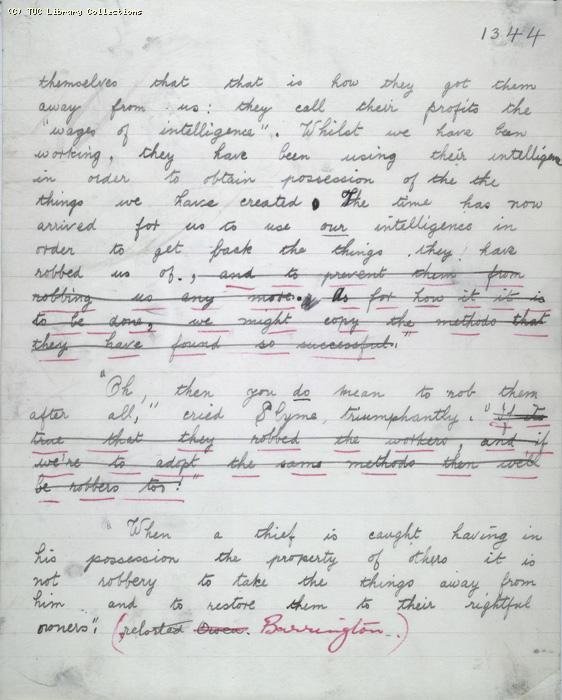 (C) TUC Library Collections
1344
themselves that that is how they got them
away from us: they call their profits the
"wages of intelligence". Whilst we have been
working, they have been using their intelligence
in order to obtain possession of the the
things we have created. The time has now
arrived for us to use our intelligence in
order to get back the things they have
robbed us of., and to prevent them from
robbing us any more. As for how it it is
to be done, we might copy the methods that
they have found so successful."
"Oh, then you do mean to rob them
after all," cried Slyme, triumphantly. "If it's
true that they robbed the workers, and if
we're to adopt the same methods then we'll
be robbers too!"
"When a thief is caught having in
his possession the property of others it is
not robbery to take the things away from
him and to restore them to their rightful
owners". (retorted Owen. Barrington.)